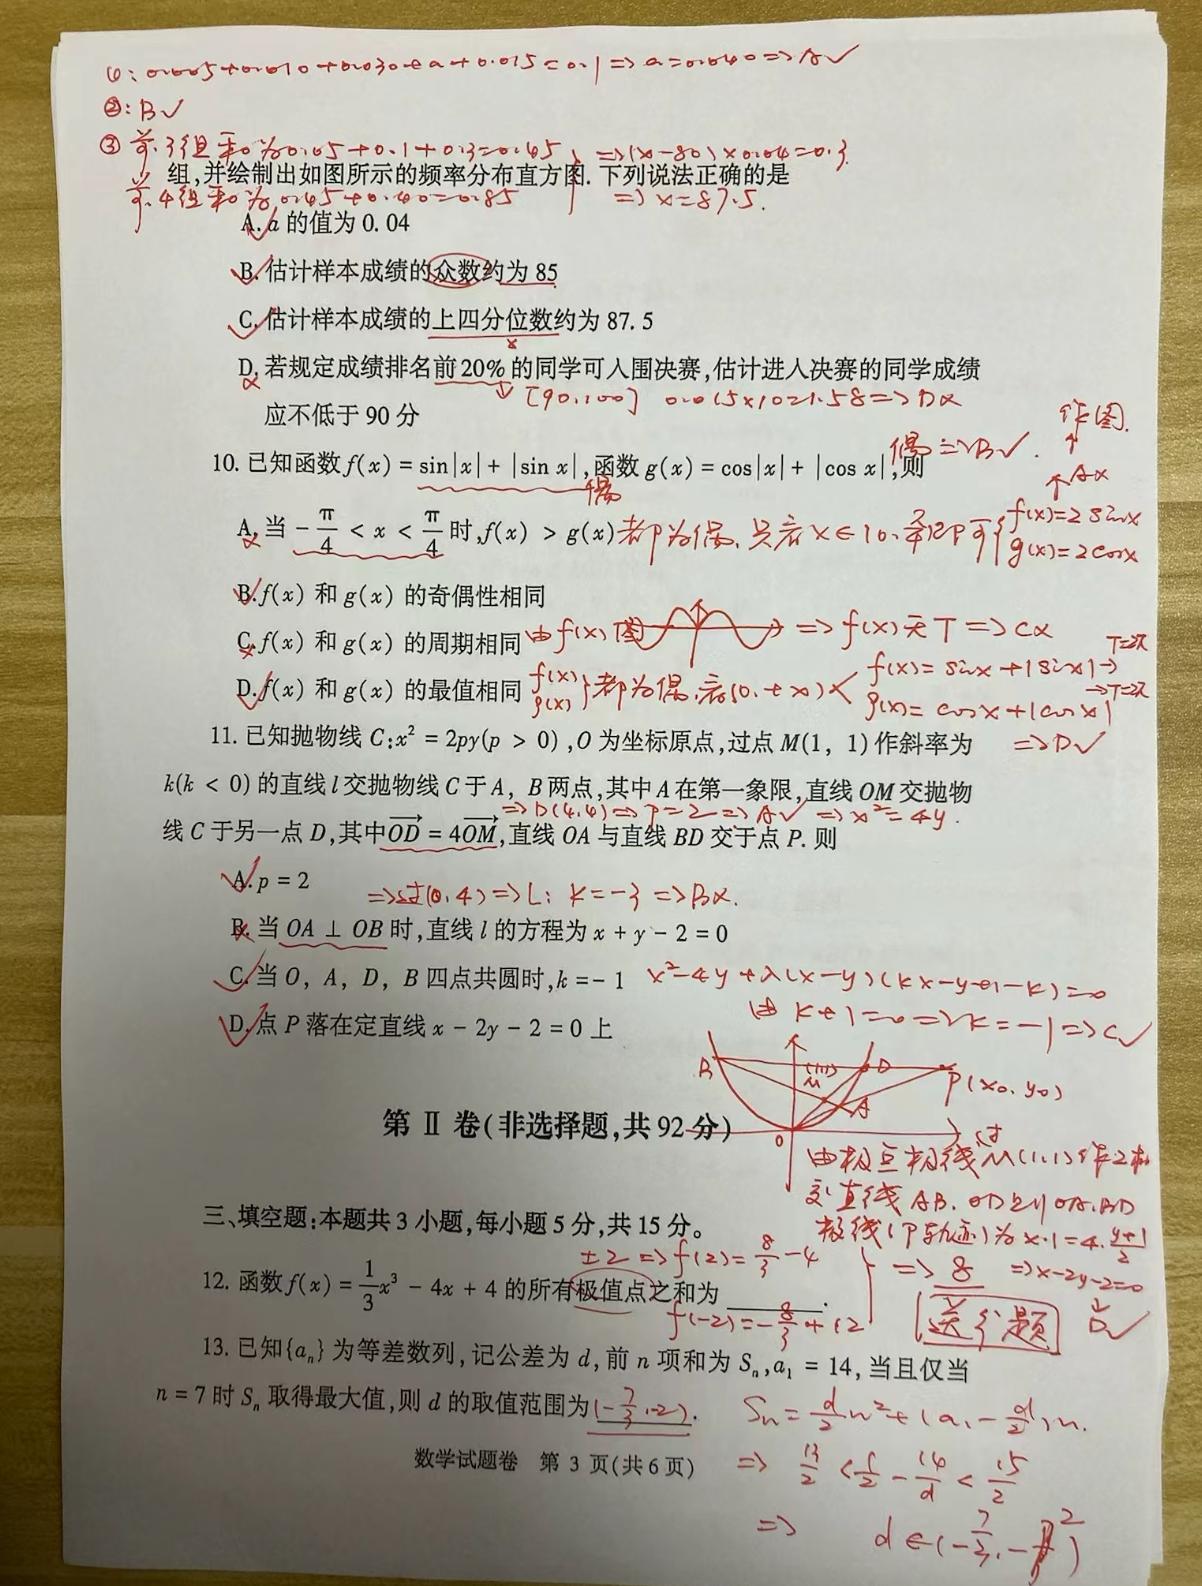 ①: 0.005+0.010+0.030+a+0.015=0.1⇒a=0.040⇒A✓
②: B✓
③ 前3组和为0.05+0.1+0.3=0.45 ⇒(x-80)×0.04=0.3
组,并绘制出如图所示的频率分布直方图. 下列说法正确的是
前4组和为0.45+0.40=0.85 ⇒x=87.5.
A. a 的值为 0. 04
B. 估计样本成绩的众数约为 85
C. 估计样本成绩的上四分位数约为 87. 5
D. 若规定成绩排名前 20% 的同学可入围决赛,估计进入决赛的同学成绩
[90,100] ⇒D×
应不低于 90 分
作图.
偶⇒B✓.
10. 已知函数 f(x) = sin|x| + |sin x|,函数 g(x) = cos|x| + |cos x|,则
偶
A×
A. 当 -π/4 < x < π/4 时,f(x) > g(x) 都为偶,只看 f(x)=2sinx
g(x)=2cosx
B. f(x) 和 g(x) 的奇偶性相同
C. f(x) 和 g(x) 的周期相同 由f(x)图 ⇒f(x)无T⇒C×
D. f(x) 和 g(x) 的最值相同 f(x) g(x) 都为偶,看(0,+∞) f(x)=sinx+|sinx|→T=2π
g(x)=cosx+|cosx|→T=2π
11. 已知抛物线 C:x² = 2py(p > 0),O 为坐标原点,过点 M(1, 1) 作斜率为 ⇒D✓
k(k < 0) 的直线 l 交抛物线 C 于 A, B 两点,其中 A 在第一象限,直线 OM 交抛物
⇒D(4,4)⇒p=2⇒A✓ ⇒x²=4y.
线 C 于另一点 D,其中 OD = 4OM,直线 OA 与直线 BD 交于点 P. 则
A. p = 2
⇒过(0,4)⇒l: k=-3⇒B×.
B. 当 OA ⊥ OB 时,直线 l 的方程为 x + y - 2 = 0
C. 当 O, A, D, B 四点共圆时,k = - 1 x²-4y+λ(x-y)(kx-y+1-k)=0
由k+1=0⇒k=-1⇒C✓
D. 点 P 落在定直线 x - 2y - 2 = 0 上
B (1,1) M D P(x₀,y₀)
A
O
第 Ⅱ 卷(非选择题,共 92 分)
过
由极点极线M(1,1)作2相
交直线AB,OD则OA,BD
三、填空题:本题共 3 小题,每小题 5 分,共 15 分。
极线(P轨迹)为x·1=4·(y+1)/2
±2⇒f(2)=8/3-4
⇒x-2y-2=0
12. 函数 f(x) = 1/3x³ - 4x + 4 的所有极值点之和为 ________.
⇒8
f(-2)=-8/3+12
送分题 D✓
13. 已知{aₙ} 为等差数列,记公差为 d,前 n 项和为 Sₙ,a₁ = 14,当且仅当
n = 7 时 Sₙ 取得最大值,则 d 的取值范围为 (-7/3,-2).
Sₙ=d/2n²+(a₁-d/2)n.
数学试题卷 第 3 页(共 6 页)
⇒ 13/2<1/2-14/d<15/2
⇒ d∈(-7/3,-2)